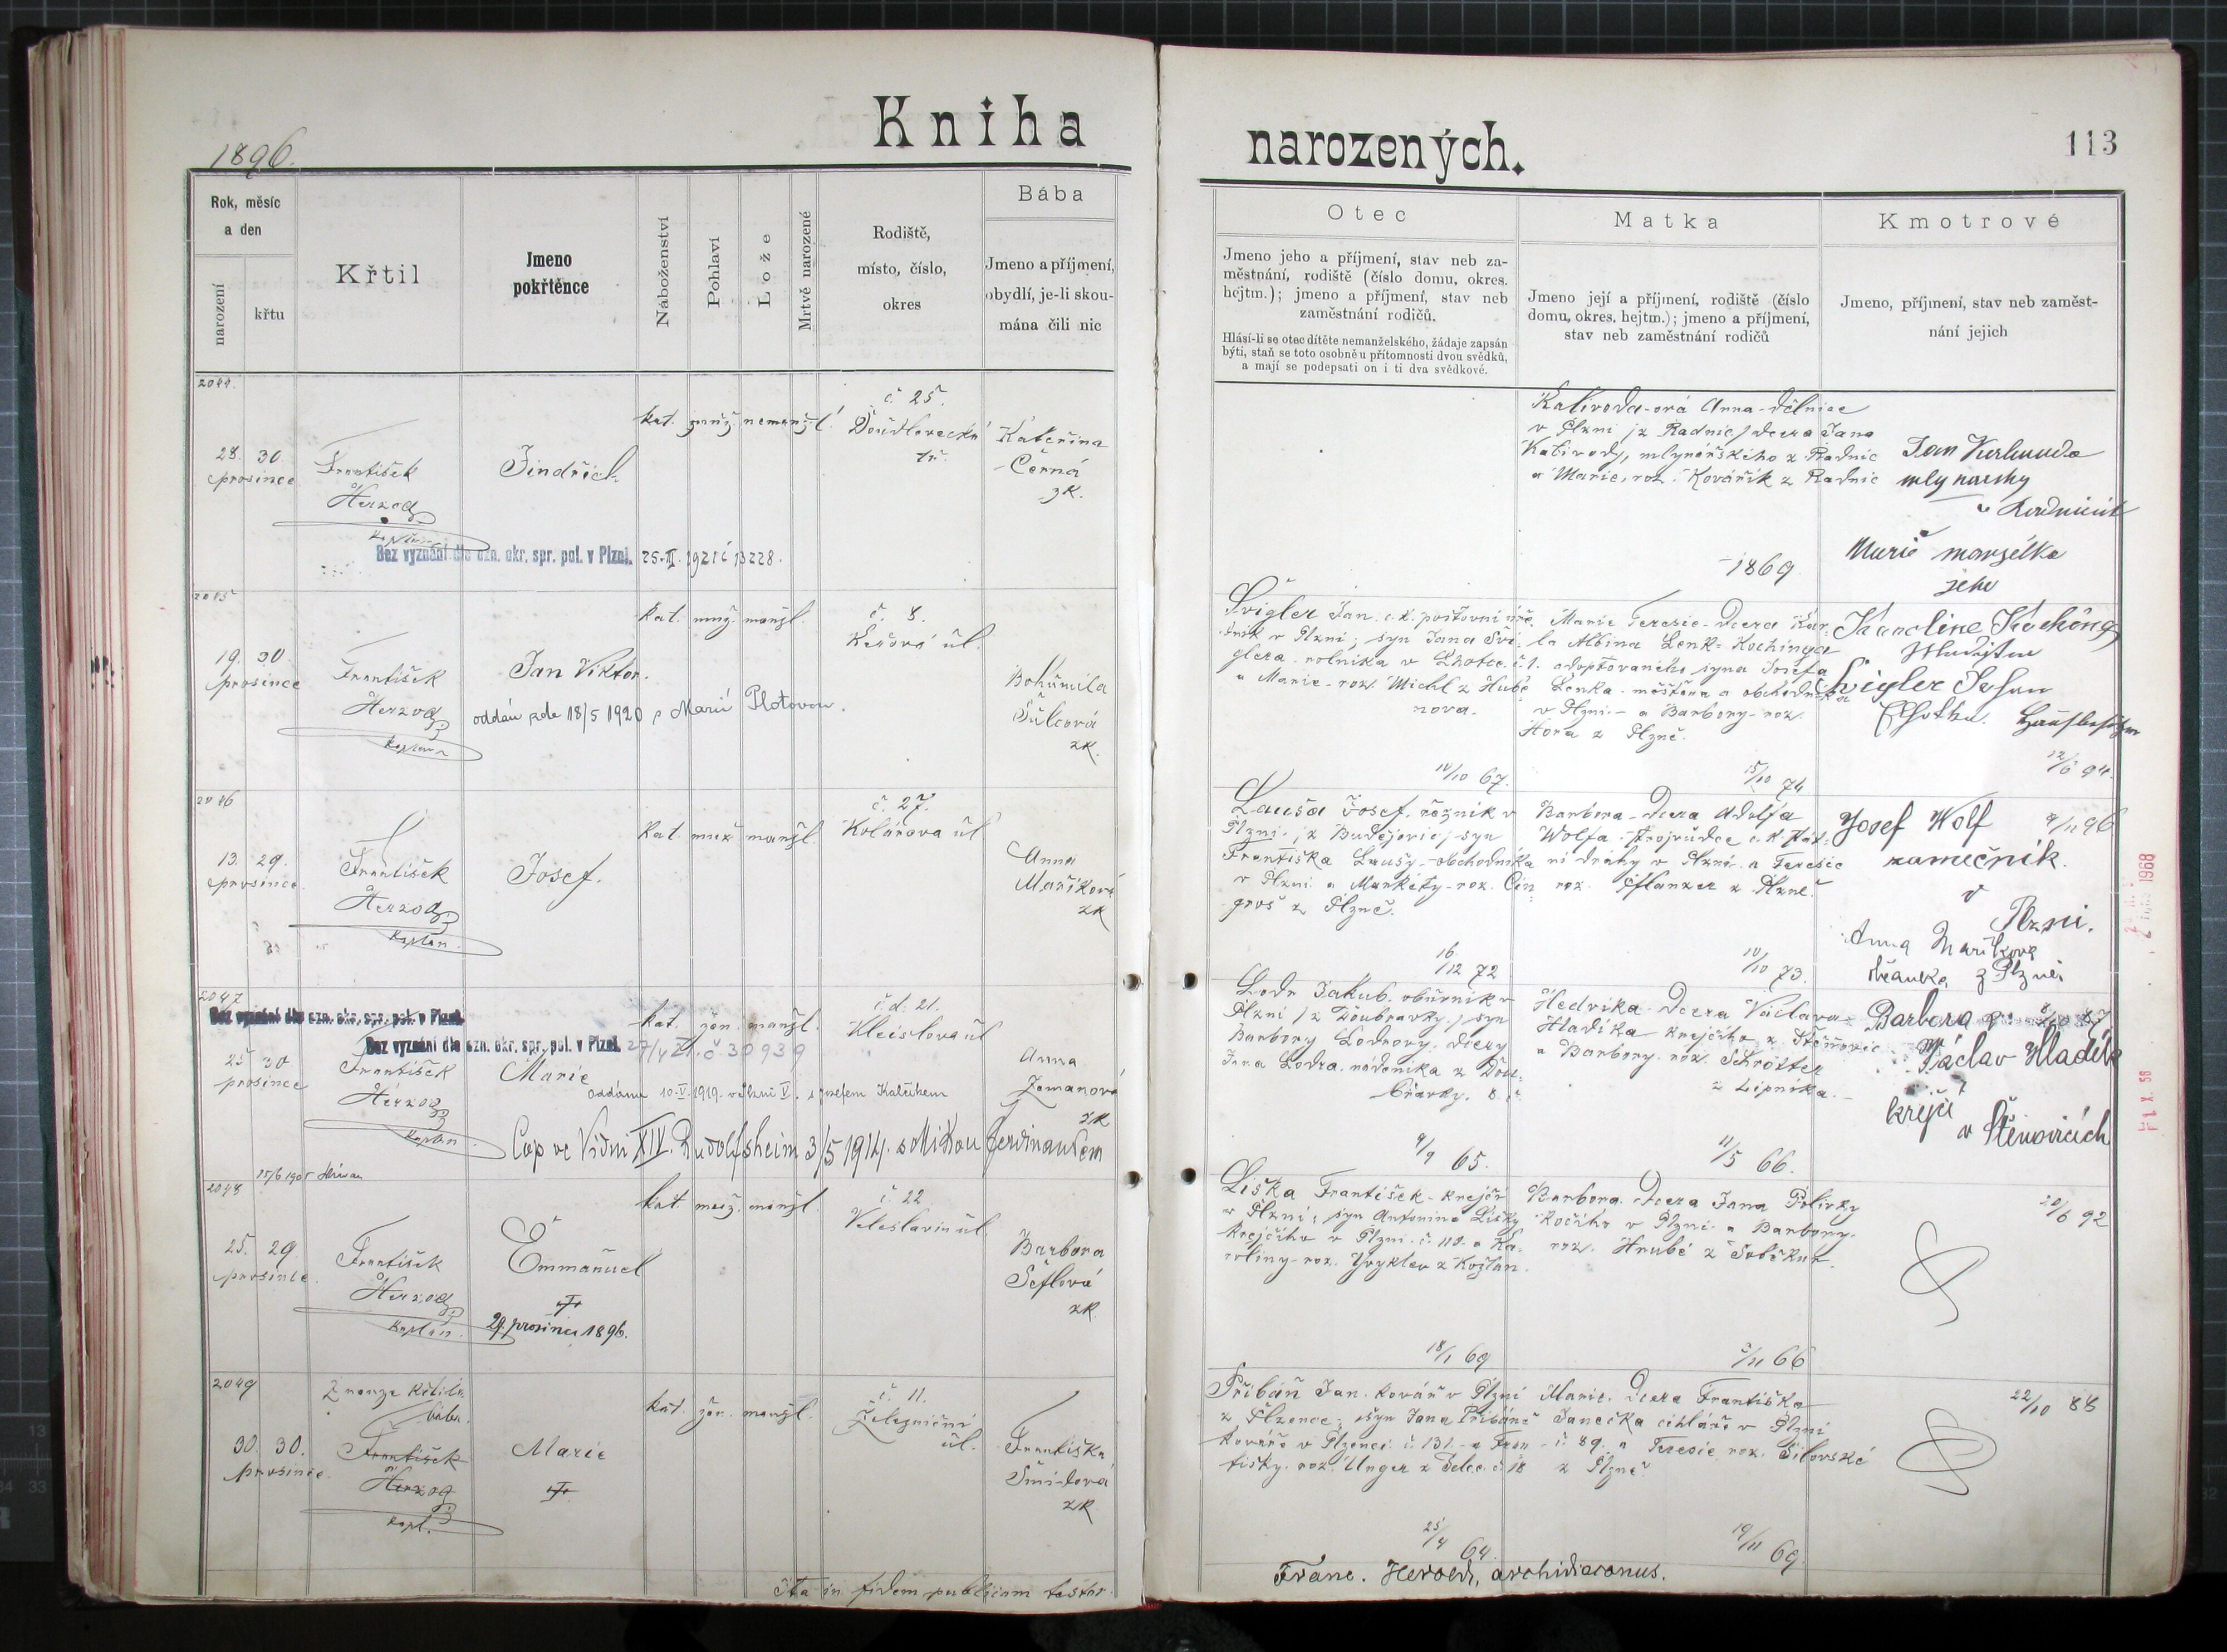 Kniha
1896.
Rok, měsíc
a den
narození
křtu
Křtil
Jmeno
pokřtěnce
Náboženství
Pohlaví
Lože
Mrtvě narozené
Rodiště,
místo, číslo,
okres
Bába
Jmeno a příjmení,
obydlí, je-li skou-
mána čili nic
2044.
28. 30.
prosince
František
Herzog
Kaplan
Jindřich.
kat. muž. nemanžl.
č. 25.
Doudlevecká
tř.
Kateřina
Černá
zk.
Bez vyznání dle ozn. okr. spr. pol. v Plzni. 25. 1921 č 13228.
2045
19. 30.
prosince
František
Herzog
kaplan
Jan Viktor.
oddán zde 18/5 1920 s Marií Plotovou.
kat. muž. manžl.
č. 8.
ul.
Bohumila
Šulcová
zk.
2046
13. 29.
prosince.
František
Herzog
kaplan.
Josef.
kat. muž. manžl.
č. 27.
Kolárova ul
Anna
Maříková
zk
2047
Bez vyznání dle ozn. okr. spr. pol. v Plzni.
Bez vyznání dle ozn. okr. spr. pol. v Plzni. 27/4 21. č. 30939
25 30
prosince
František
Herzog
kaplan.
Marie
kat. žen. manžl.
č. d. 21.
Kleislova ul
Anna
Zemanová
zk
oddána 10. V. 1919. v Plzni s Josefem
Cop ve Vídni XIV. Rudolfsheim 3/5 1914. s Mikou Ferdinandem
15/6 1905
2048
25. 29.
prosince.
František
Herzog
kaplan.
Emmanuel
29. prosince 1896.
kat. muž. manžl.
č. 22
Veleslavín ul.
Barbora
Šeflová
zk.
2049
Z nouze křtila
bába.
30. 30.
prosince.
František
Herzog
kapl.
Marie
kat. žen. manžl.
č. 11.
Železniční
ul.
Františka
Šmídová
zk
Ita in fidem publicam testor.
narozených.
113
Otec
Jmeno jeho a příjmení, stav neb za-
městnání, rodiště (číslo domu, okres.
hejtm.); jmeno a příjmení, stav neb
zaměstnání rodičů.
Hlásí-li se otec dítěte nemanželského, žádaje zapsán
býti, staň se toto osobně u přítomnosti dvou svědků,
a mají se podepsati on i ti dva svědkové.
Matka
Jmeno její a příjmení, rodiště (číslo
domu, okres. hejtm.); jmeno a příjmení,
stav neb zaměstnání rodičů
Kmotrové
Jmeno, příjmení, stav neb zaměst-
nání jejich
Kalivoda-ová Anna - dělnice
v Plzni (z Radnic) dcera Jana
Kalivody, mlynářského z Radnic
a Marie, roz. Kovářík z Radnic
1869
mlynarsky
Marie manželka
jeho
Švigler Jan. c.k. poštovní úře-
dník v Plzni; syn Jana Švi-
glera rolníka v Lhotce č. 1.
a Marie - roz. Michl z Hubé-
nova.
10/10 67.
Marie Teresie - dcera Kar-
la Albína Lenk-Kochinga
adoptovaného syna Josefa
Lenka - měšťana a obchodníka
v Plzni - a Barbory - roz.
Hora z Plzně.
15/10 74
Karoline Kochöng
Švigler Johan
12/6 94.
Lauša Josef. řezník v
Plzni (z Budějovic) syn
Františka Laušy - obchodníka
v Plzni a Markéty - roz. Cín-
groš z Plzně.
16/12 72
Barbora - dcera Adolfa
Wolfa - strojvůdce c. k. stát-
ní dráhy v Plzni a Teresie
roz. Pflanzer z Plzně.
10/10 73.
Josef Wolf
9/11 96
zamečník.
v
Plzni.
Anna Maříková
z Plzně
Lodr Jakub. obuvník v
Plzni (z Doubravky) syn
Barbory Lodrovy, dcery
Jana Lodra, nádeníka z Dou-
bravky. 8.
9/9 65.
Hedvika - dcera Václava
Hladíka krejčího z Štěnovic
a Barbory roz. Schrötter
z Lipníka.
11/5 66.
Barbora
Václav Hladík
krejčí
v Štěnovicích
Liška František - krejčí
v Plzni, syn Antonína Lišky
krejčího v Plzni č. 110. a Ka-
roliny - roz. z Kožlan.
18/1 69
Barbora. dcera Jana Polívky
kočího v Plzni a Barbory-
roz. Hrubé z Soběkur.
5/11 66
20/6 92
Přibáň Jan. kovář v Plzni
z Plzence, syn Jana Přibáně
kováře v Plzenci č. 131. a Fran-
tišky. roz. Unger z Želec. č. 18
25/4 64.
Marie. dcera Františka
Janečka cihláře v Plzni
č. 89. a Teresie roz. Šilovské
z Plzně
19/11 69
22/10 88
Franc. Herold, archidiaconus.
1968